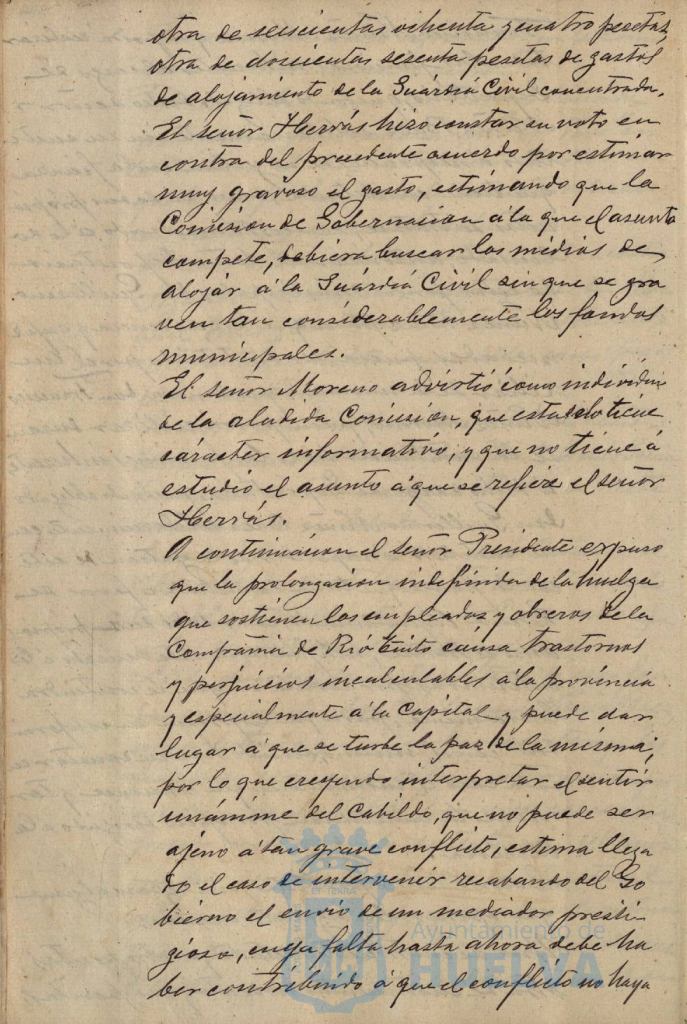 otra de seiscientas ochenta y cuatro pesetas,
otra de doscientas sesenta pesetas de gastos
de alojamiento de la Guárdia Civil concentrada.
El señor Herrás hizo constar su voto en
contra del precedente acuerdo por estimar
muy gravoso el gasto, estimando que la
Comision de Gobernacion á la que el asunto
compete, debiera buscar los medios de
alojár á la Guárdia Civil sin que se gra
ven tan considerablemente los fondos
municipales.
El señor Moreno advirtió como individuo
de la aludida Comision, que esta solo tiene
carácter informativo, y que no tiene á
estudio el asunto á que se refiere el señor
Herrás.
A continuacion el señor Presidente expuso
que la prolongacion indefinida de la huelga
que sostienen los empleados y obreros de la
Compañia de Rio Tinto causa trastornos
y perjuicios incalculables á la provincia
y especialmente á la Capital y puede dar
lugar á que se turbe la paz de la misma;
por lo que creyendo interpretar el sentir
unánime del Cabildo, que no puede ser
ajeno á tan grave conflicto, estima llega
do el caso de intervenir recabando del Go
bierno el envio de un mediador presti-
gioso, cuya falta hasta ahora debe ha
ber contribuido á que el conflicto no haya
Ayuntamiento de
HUELVA